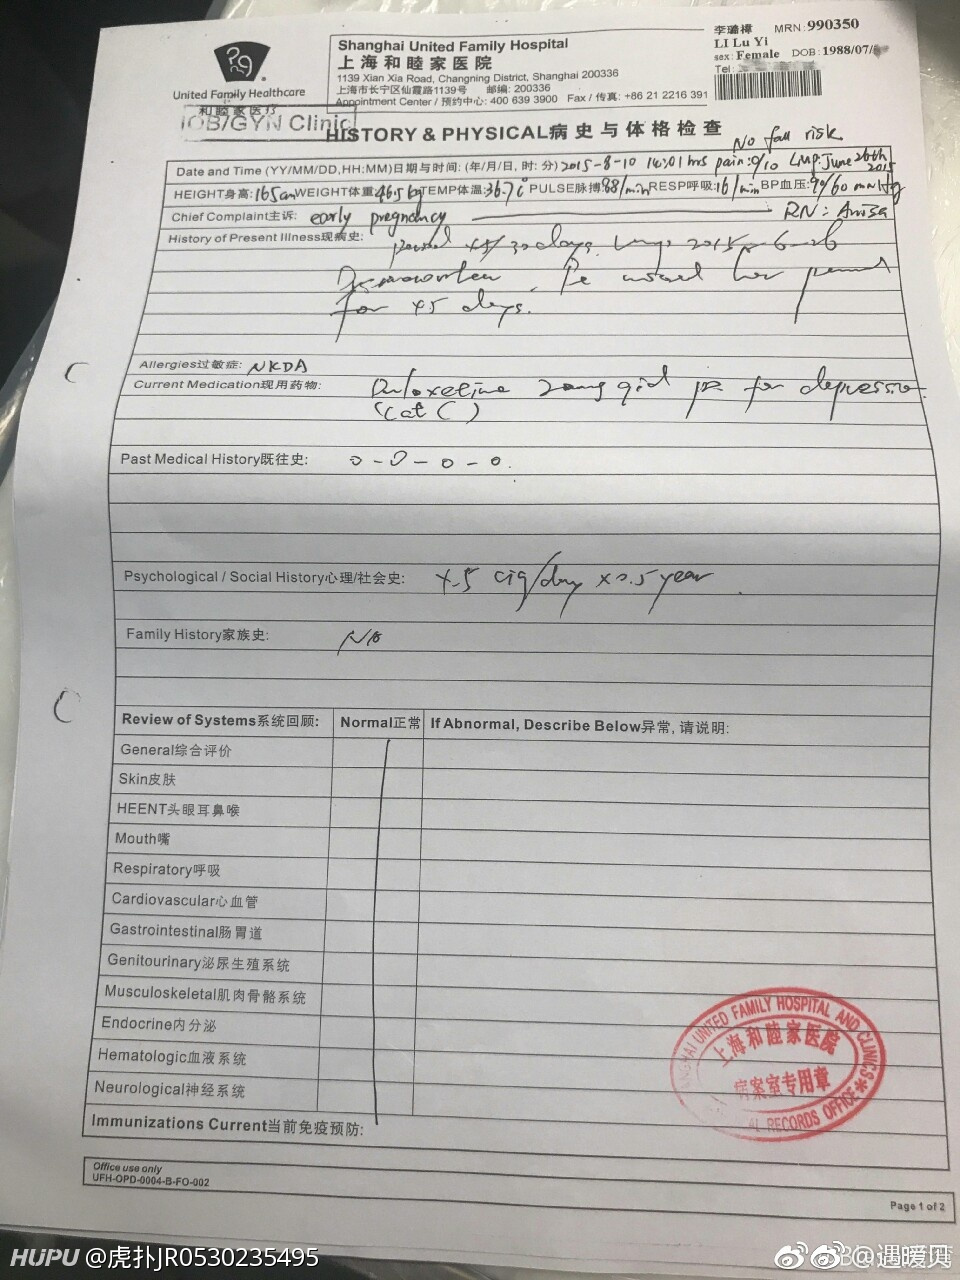 李璐祎 MRN: 990350
LI Lu Yi
sex: Female DOB: 1988/07/
Tel:
United Family Healthcare
和睦家医疗
Shanghai United Family Hospital
上海和睦家医院
1139 Xian Xia Road, Changning District, Shanghai 200336
上海市长宁区仙霞路1139号 邮编: 200336
Appointment Center / 预约中心: 400 639 3900 Fax / 传真: +86 21 2216 391
OB/GYN Clinic
HISTORY & PHYSICAL病史与体格检查
No fall risk
Date and Time (YY/MM/DD,HH:MM)日期与时间: (年/月/日, 时: 分) 2015-8-10 14:01 hrs pain: 0/10 LMP: June 26th 2015
HEIGHT身高: 165cm WEIGHT体重: 46.5kg TEMP体温: 36.7c PULSE脉搏: 88/min RESP呼吸: 16/min BP血压: 90/60 mmHg
Chief Complaint主诉: early pregnancy RN: Anisa
History of Present Illness现病史: period /30 days. Lmp 2015-6-26
missed her period
for 45 days.
Allergies过敏症: NKDA
Current Medication现用药物: Duloxetine 20mg qid for depression
(cat C)
Past Medical History既往史: 0-0-0-0.
Psychological / Social History心理/社会史: cig/day year
Family History家族史:
Review of Systems系统回顾: Normal正常 If Abnormal, Describe Below异常, 请说明:
General综合评价
Skin皮肤
HEENT头眼耳鼻喉
Mouth嘴
Respiratory呼吸
Cardiovascular心血管
Gastrointestinal肠胃道
Genitourinary泌尿生殖系统
Musculoskeletal肌肉骨骼系统
Endocrine内分泌
Hematologic血液系统
Neurological神经系统
Immunizations Current当前免疫预防:
SHANGHAI UNITED FAMILY HOSPITAL AND CLINICS
上海和睦家医院
病案室专用章
RECORDS OFFICE
Office use only
UFH-OPD-0004-B-FO-002
Page 1 of 2
HUPU @虎扑JR0530235495
@遇暖贝